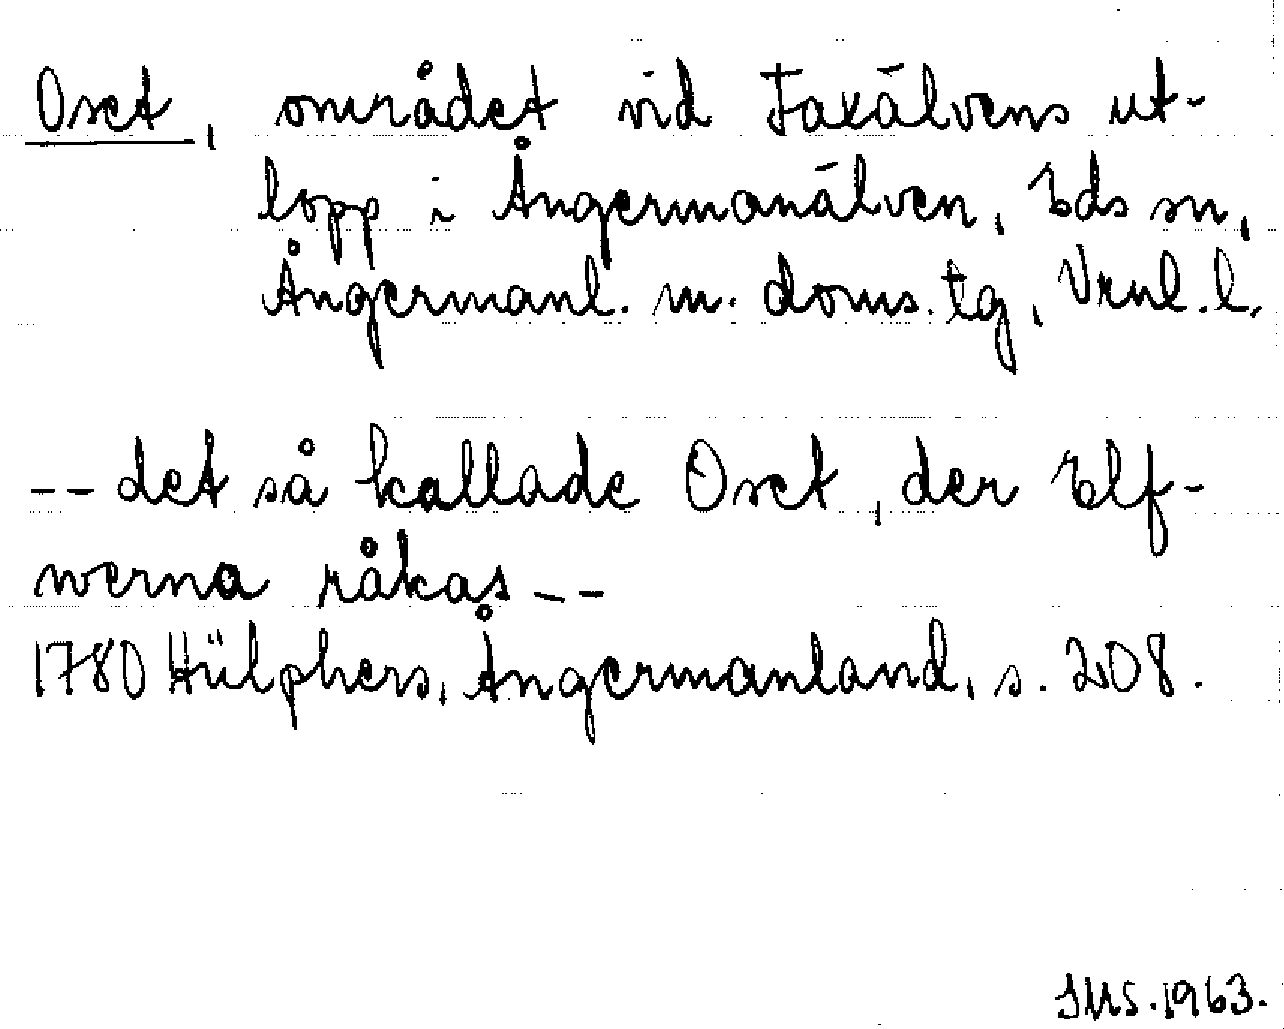 Oset, området vid Faxälvens ut-
lopp i Ångermanälven, Eds sn,
Ångermanl. m. doms. tg, Vrnl. l.
-- det så kallade Oset, der Elf-
werna råkas --
1780 Hülphers, Ångermanland, s. 208.
IMS. 1963.